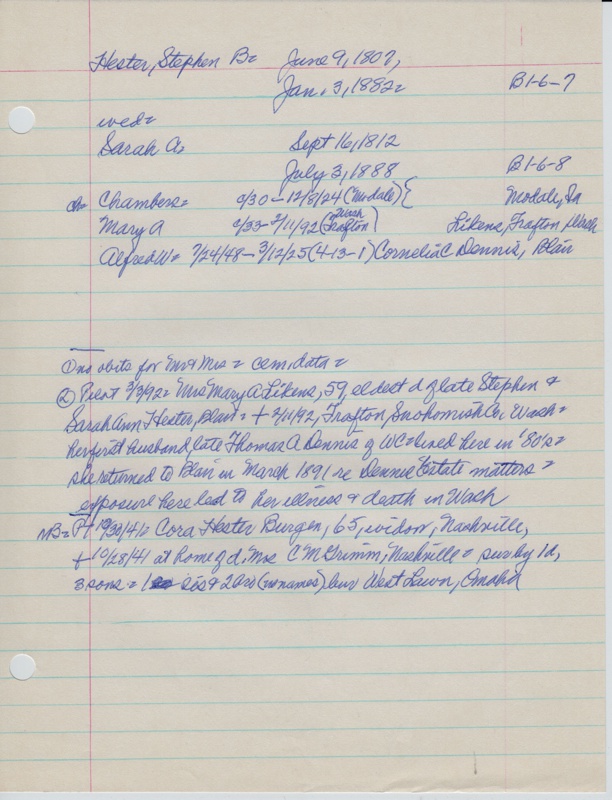 Hester, Stephen B= June 9, 1807,
Jan. 3, 1882= B1-6-7
wed=
Sarah A, Sept 16, 1812
July 3, 1888 B1-6-8
ch= Chambers= c/30 - 12/8/24 (Modale) { Modale, Ia
Mary A c/33 - 2/11/92 (Trafton Wash) Likens, Trafton, Wash
Alfred W= 7/24/48 - 3/12/25 (4-13-1) Cornelia C Dennis, Blair
① no obits for Mr & Mrs = cem. data=
② Pilot 3/3/92= Mrs Mary A Likens, 59, eldest d of late Stephen &
Sarah Ann Hester, Blair= + 2/11/92, Trafton, Snohomish Co, Wash=
her first husband, late Thomas A Dennis of WC= lived here in '80's=
she returned to Blair in March 1891 re Dennis Estate matters=
exposure here led to her illness & death in Wash
NB= PT 10/30/41= Cora Hester Burgen, 65, widow, Nashville,
+ 10/28/41 at home of d, Mrs C M Grimm, Nashville= sur by 1 d,
3 sons= 1 sis & 2 bro (no names) bur West Lawn, Omaha